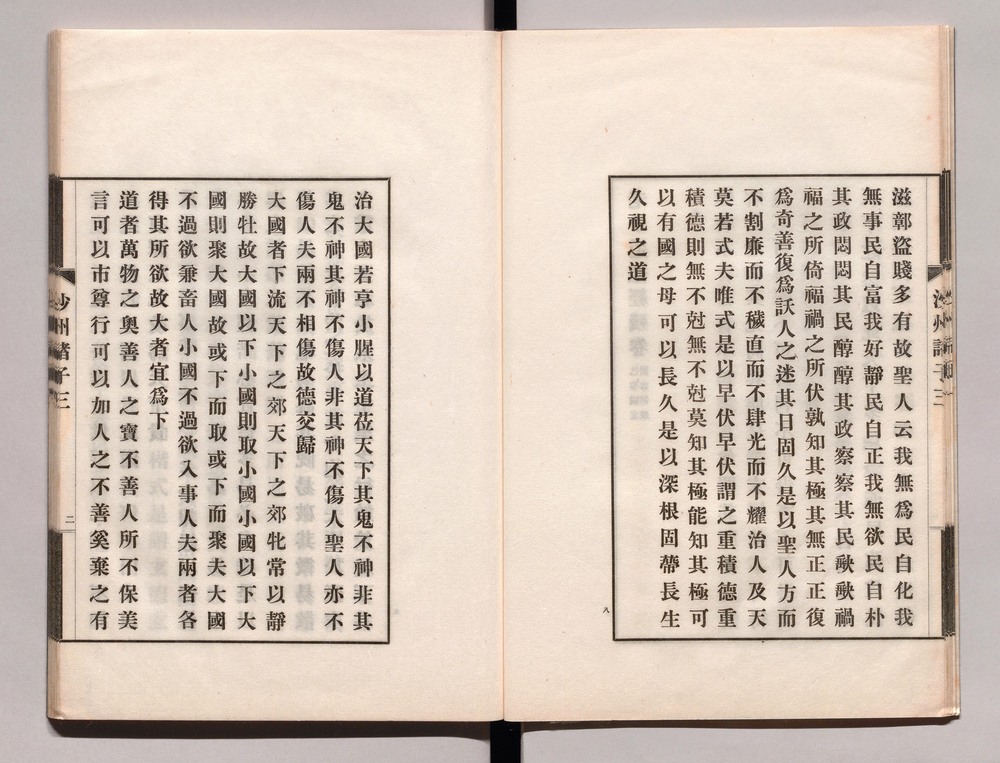 滋鄣盜賤多有故聖人云我無為民自化我
無事民自富我好靜民自正我無欲民自朴
其政悶悶其民醇醇其政察察其民㱇㱇禍
福之所倚福禍之所伏孰知其極其無正正復
為奇善復為訞人之迷其日固久是以聖人方而
不割廉而不穢直而不肆光而不耀治人及天
莫若式夫唯式是以早伏早伏謂之重積德重
積德則無不尅無不尅莫知其極能知其極可
以有國之母可以長久是以深根固蔕長生
久視之道
八
治大國若亨小腥以道莅天下其鬼不神非其
鬼不神其神不傷人非其神不傷人聖人亦不
傷人夫兩不相傷故德交歸
大國者下流天下之郊天下之郊牝常以靜
勝牡故大國以下小國則取小國小國以下大
國則聚大國故或下而取或下而聚夫大國
不過欲兼畜人小國不過欲入事人夫兩者各
得其所欲故大者宜為下
道者萬物之奧善人之寶不善人所不保美
言可以市尊行可以加人之不善奚棄之有
二